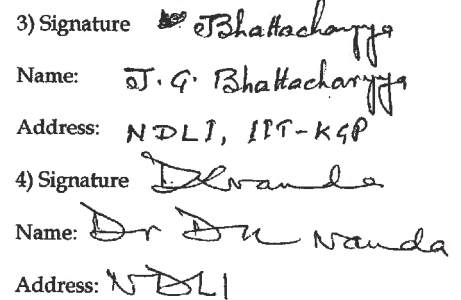 3) Signature JBhattacharyya
Name: J. G. Bhattacharyya
Address: NDLI, IIT-KGP
4) Signature
Name: Dr Nanda
Address: NDLI